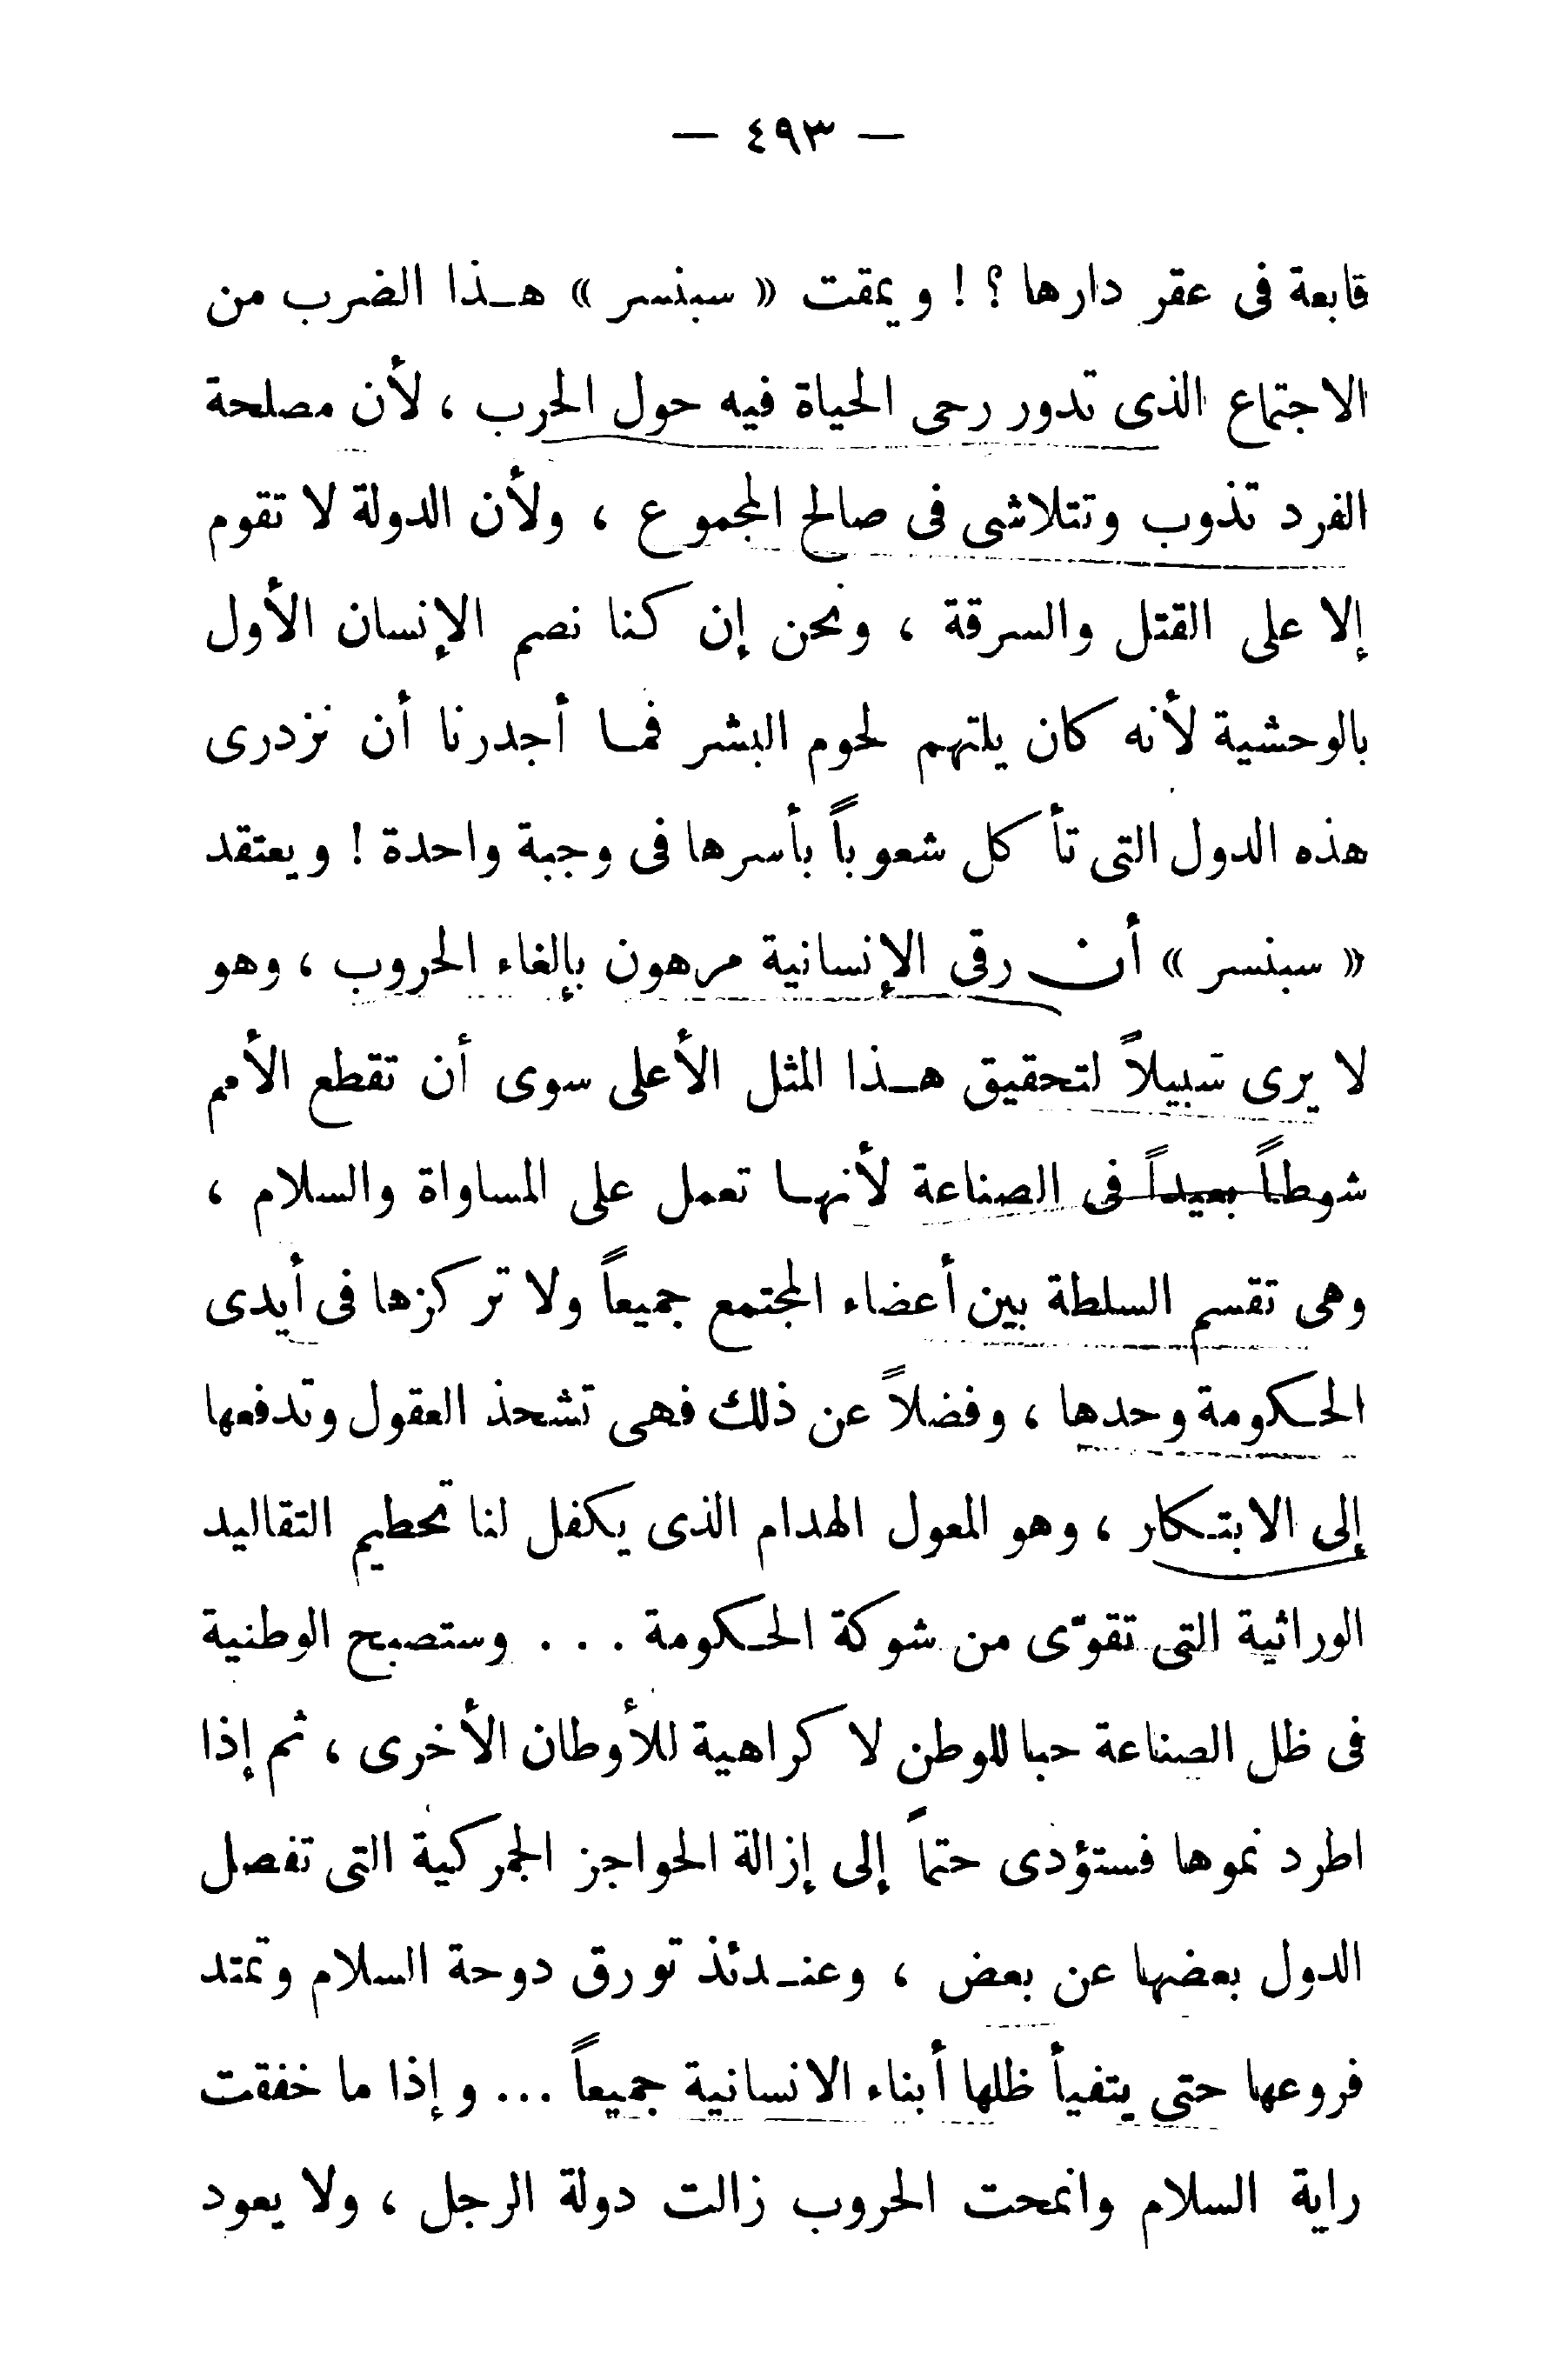 — ٤٩٣ —
قابعة فى عقر دارها ؟ ! ويمقت « سبنسر » هـذا الضرب من
الاجتماع الذى تدور رحى الحياة فيه حول الحرب ، لأن مصلحة
الفرد تذوب وتتلاشى فى صالح المجموع ، ولأن الدولة لا تقوم
إلا على القتل والسرقة ، ونحن إن كنا نصم الإنسان الأول
بالوحشية لأنه كان يلتهم لحوم البشر فمـا أجدرنا أن نزدرى
هذه الدول التى تأكل شعوباً بأسرها فى وجبة واحدة ! ويعتقد
« سبنسر » أن رقى الإنسانية مرهون بإلغاء الحروب ، وهو
لا يرى سبيلاً لتحقيق هـذا المثل الأعلى سوى أن تقطع الأمم
شوطاً بعيداً فى الصناعة لأنهـا تعمل على المساواة والسلام ،
وهى تقسم السلطة بين أعضاء المجتمع جميعاً ولا تركزها فى أيدى
الحـكومة وحدها ، وفضلاً عن ذلك فهى تشحذ العقول وتدفعها
إلى الابتـكار ، وهو المعول الهدام الذى يكفل لنا تحطيم التقاليد
الوراثية التى تقوّى من شوكة الحـكومة . . . وستصبح الوطنية
فى ظل الصناعة حبا للوطن لا كراهية للأوطان الأخرى ، ثم إذا
اطرد نموها فستؤدى حتماً إلى إزالة الحواجز الجمركية التى تفصل
الدول بعضها عن بعض ، وعنـدئذ تورق دوحة السلام وتمتد
فروعها حتى يتفيأ ظلها أبناء الانسانية جميعاً ... وإذا ما خفقت
راية السلام وانمحت الحروب زالت دولة الرجل ، ولا يعود